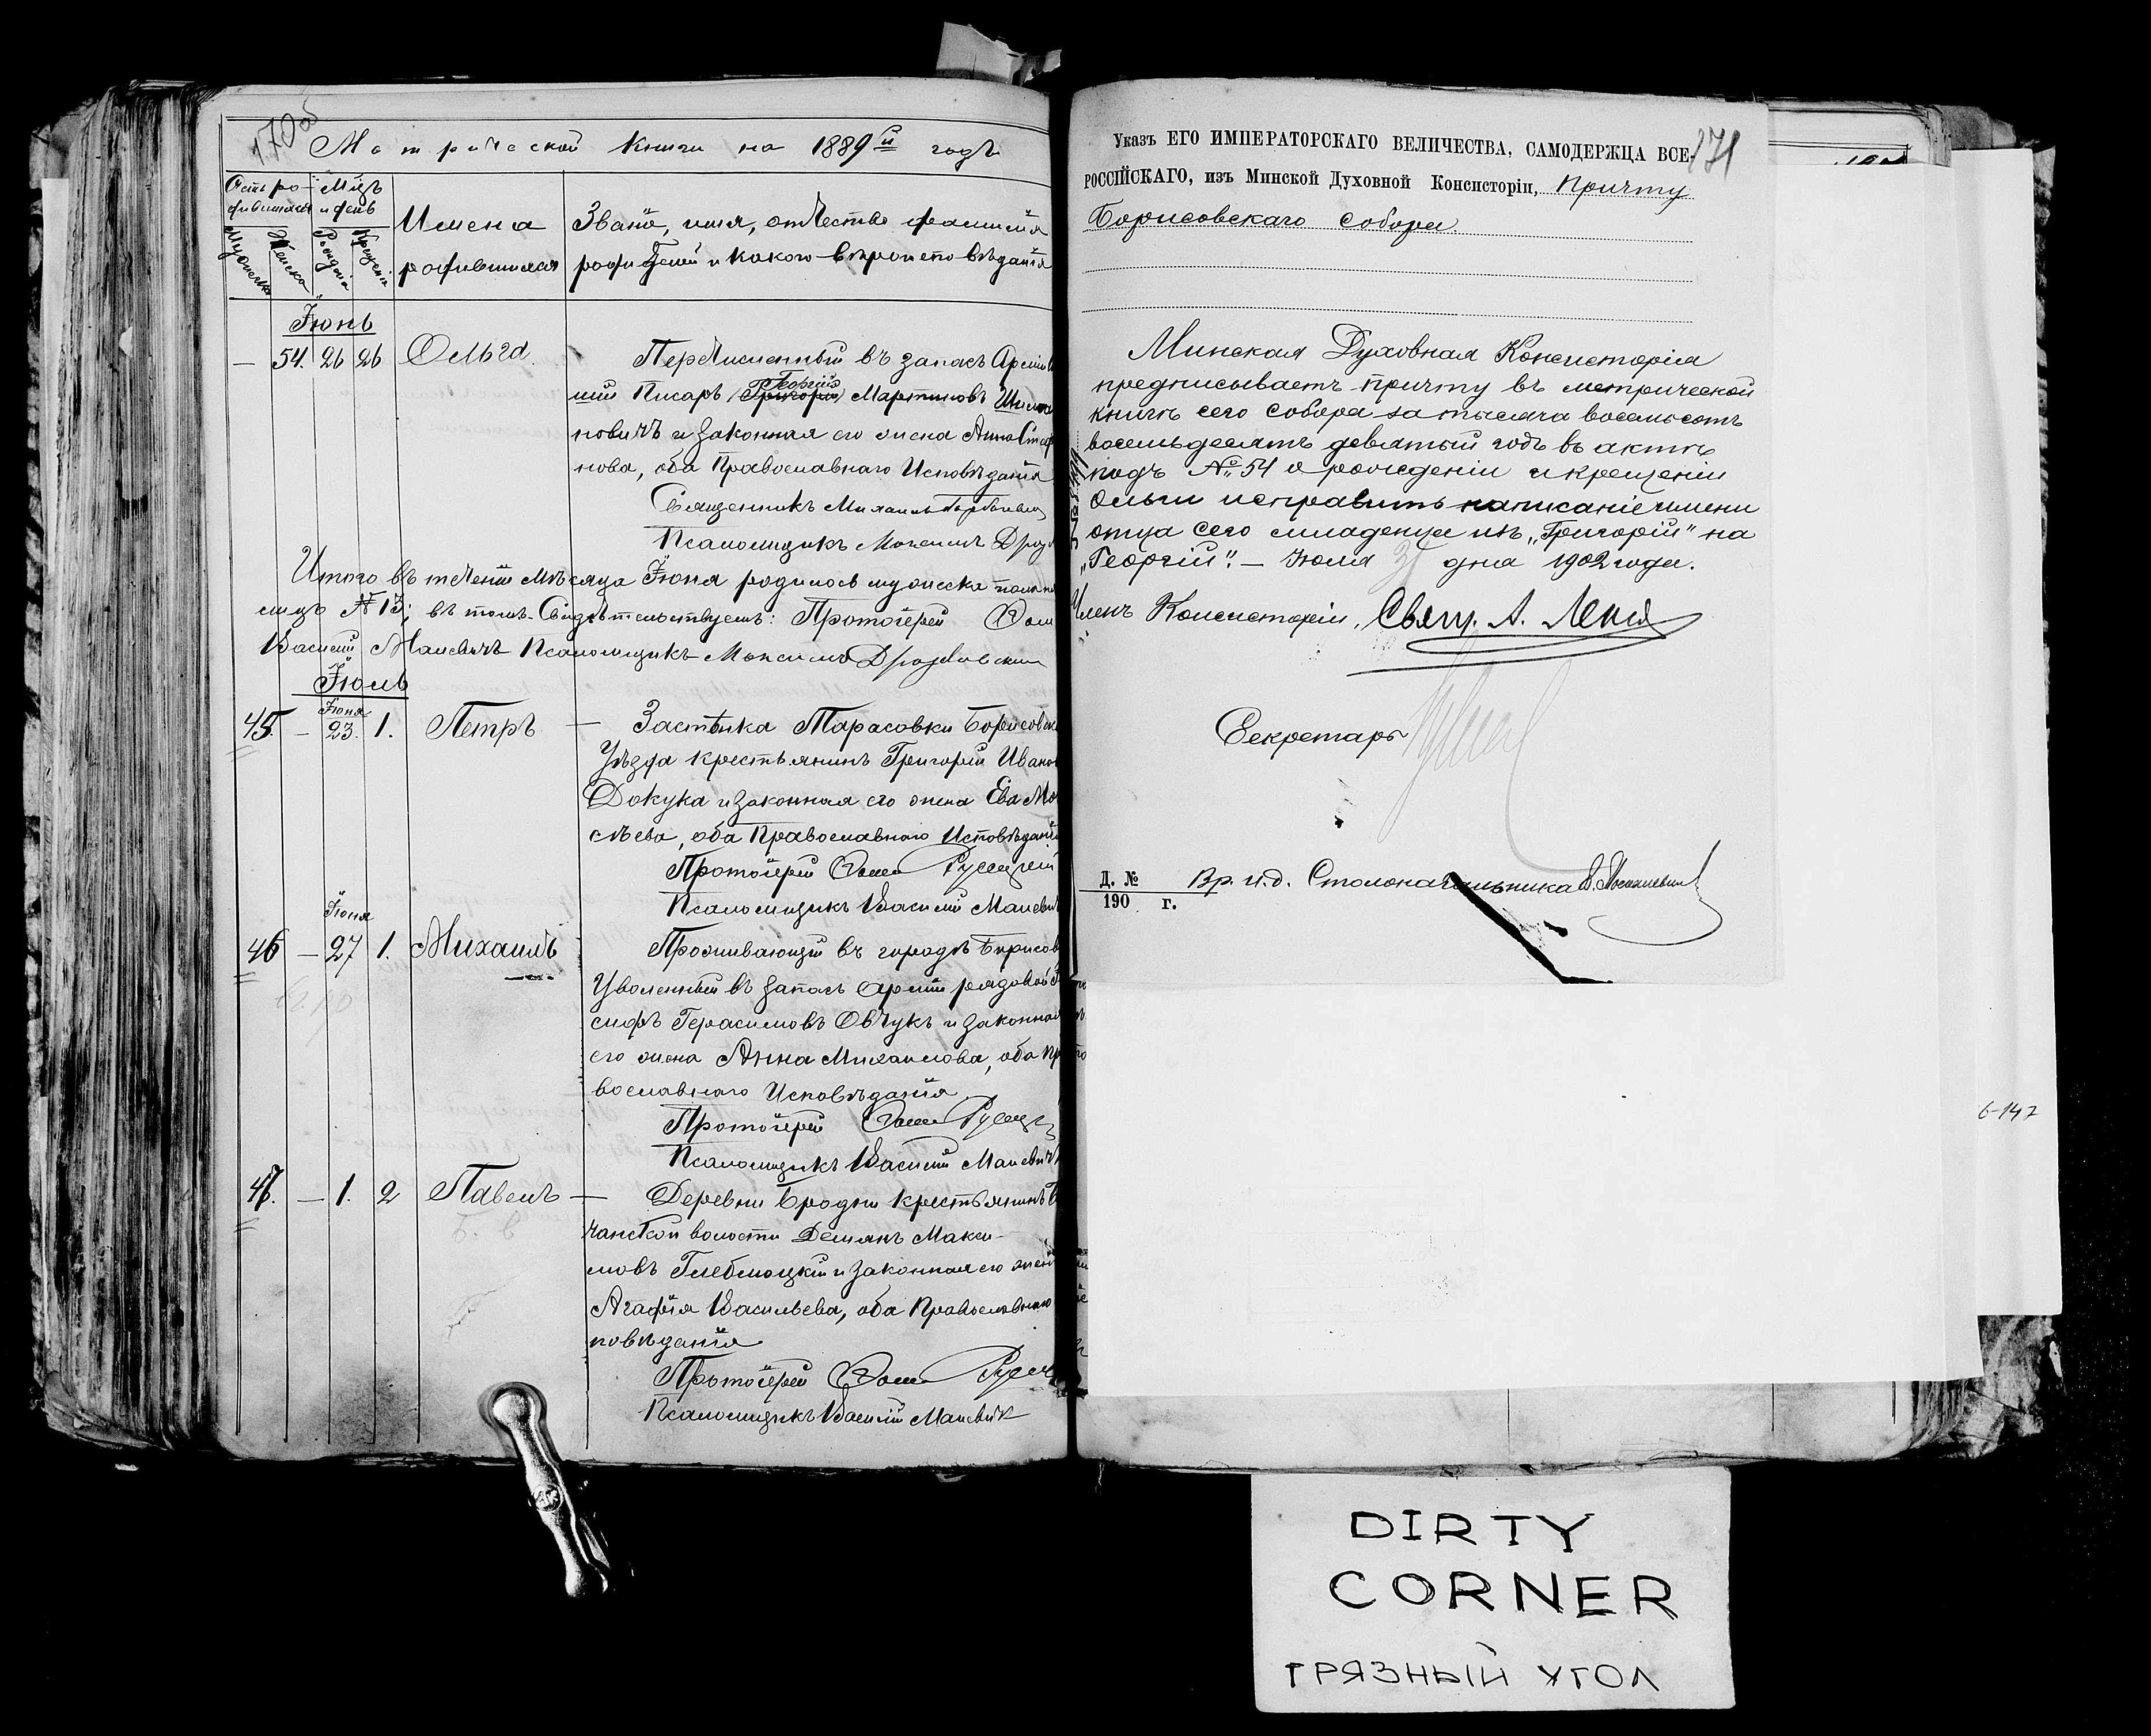 170об
Метрической книги на 1889й годъ
Счетъ ро-
дившихся
Мѣсц
и день
Мужеска
Женска
Рожденія
Крещенія
Имена
родившихся
Званіе, имя, отчество фамилія
родителей и какого вѣроисповѣданія
Іюнь
— 54. 26 26 Ольга. Перечисленный въ запасъ Арміи
Писарь Григорій Георгій Мартиновъ
новичъ и законная его жена Анна Стеф
нова, оба Православнаго Исповѣданія
Священникъ Михаилъ
Псаломщикъ Максимъ Дроз
Итого въ теченіи мѣсяца Іюня родилось мужеска пола
№ 13; въ томъ Свидѣтельствуемъ: Протоіерей
Василій Малевичъ Псаломщикъ Максимъ Дроздовскій
Іюль
Іюня
45. — 23. 1. Петръ — Застѣнка Тарасовки Борисовск
Уѣзда крестьянинъ Григорій Ивано
Докука и законная его жена Ева Мо
сѣева, оба Православнаго Исповѣданія
Протоіерей
Псаломщикъ Василій Малевич
Іюня
46 — 27 1. Михаилъ Проживающій въ городѣ Борисов
Уволенный въ запасъ Арміи рядовой
сифъ Герасимовъ Овчукъ и законная
его жена Анна Михаилова, оба Пр
вославнаго Исповѣданія
Протоіерей
Псаломщикъ Василій Малевичъ
47. — 1. 2 Павелъ — Деревни Бродни крестьянинъ
чанской волости Демянъ Макси-
мовъ и законная его жен
Агафія Васильева, оба Православнаго
повѣданія
Протоіерей
Псаломщикъ Василій Малевич
171
Указъ ЕГО ИМПЕРАТОРСКАГО ВЕЛИЧЕСТВА, САМОДЕРЖЦА ВСЕ-
РОССІЙСКАГО, изъ Минской Духовной Консисторіи, Причту
Борисовскаго собора.
Минская Духовная Консисторія
предписываетъ причту въ метрической
книгѣ сего собора за тысяча восемьсотъ
восемьдесятъ девятый годъ въ актѣ
подъ № 54 о рожденіи и крещеніи
Ольги исправить написаніе имени
отца сего младенца изъ „Григорій" на
„Георгій". — Іюля 31 дня 1902 года.
Членъ Консисторіи, Свящ. А.
Секретарь
Д. № Вр. и. д. Столоначальника
190 г.
6-147
DIRTY
CORNER
ГРЯЗНЫЙ УГОЛ